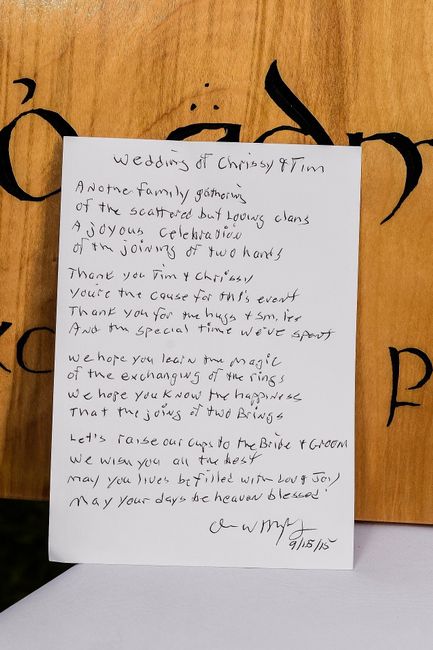 Wedding of Chrissy & Tim
Anothe family gathering
of the scattered but Loving clans
A Joyous Celebration
of the joining of two hands
Thank you Tim & Chrissy
You're the cause for this event
Thank you for the hugs & smiles
And the special time we've spent
We hope you learn the magic
of the exchanging of the rings
We hope you know the happiness
That the joing of two Brings
Let's raise our cups to the Bride & Groom
We wish you all the best
may you lives be filled with Love & Joy
May your days be heaven blessed!
9/15/15